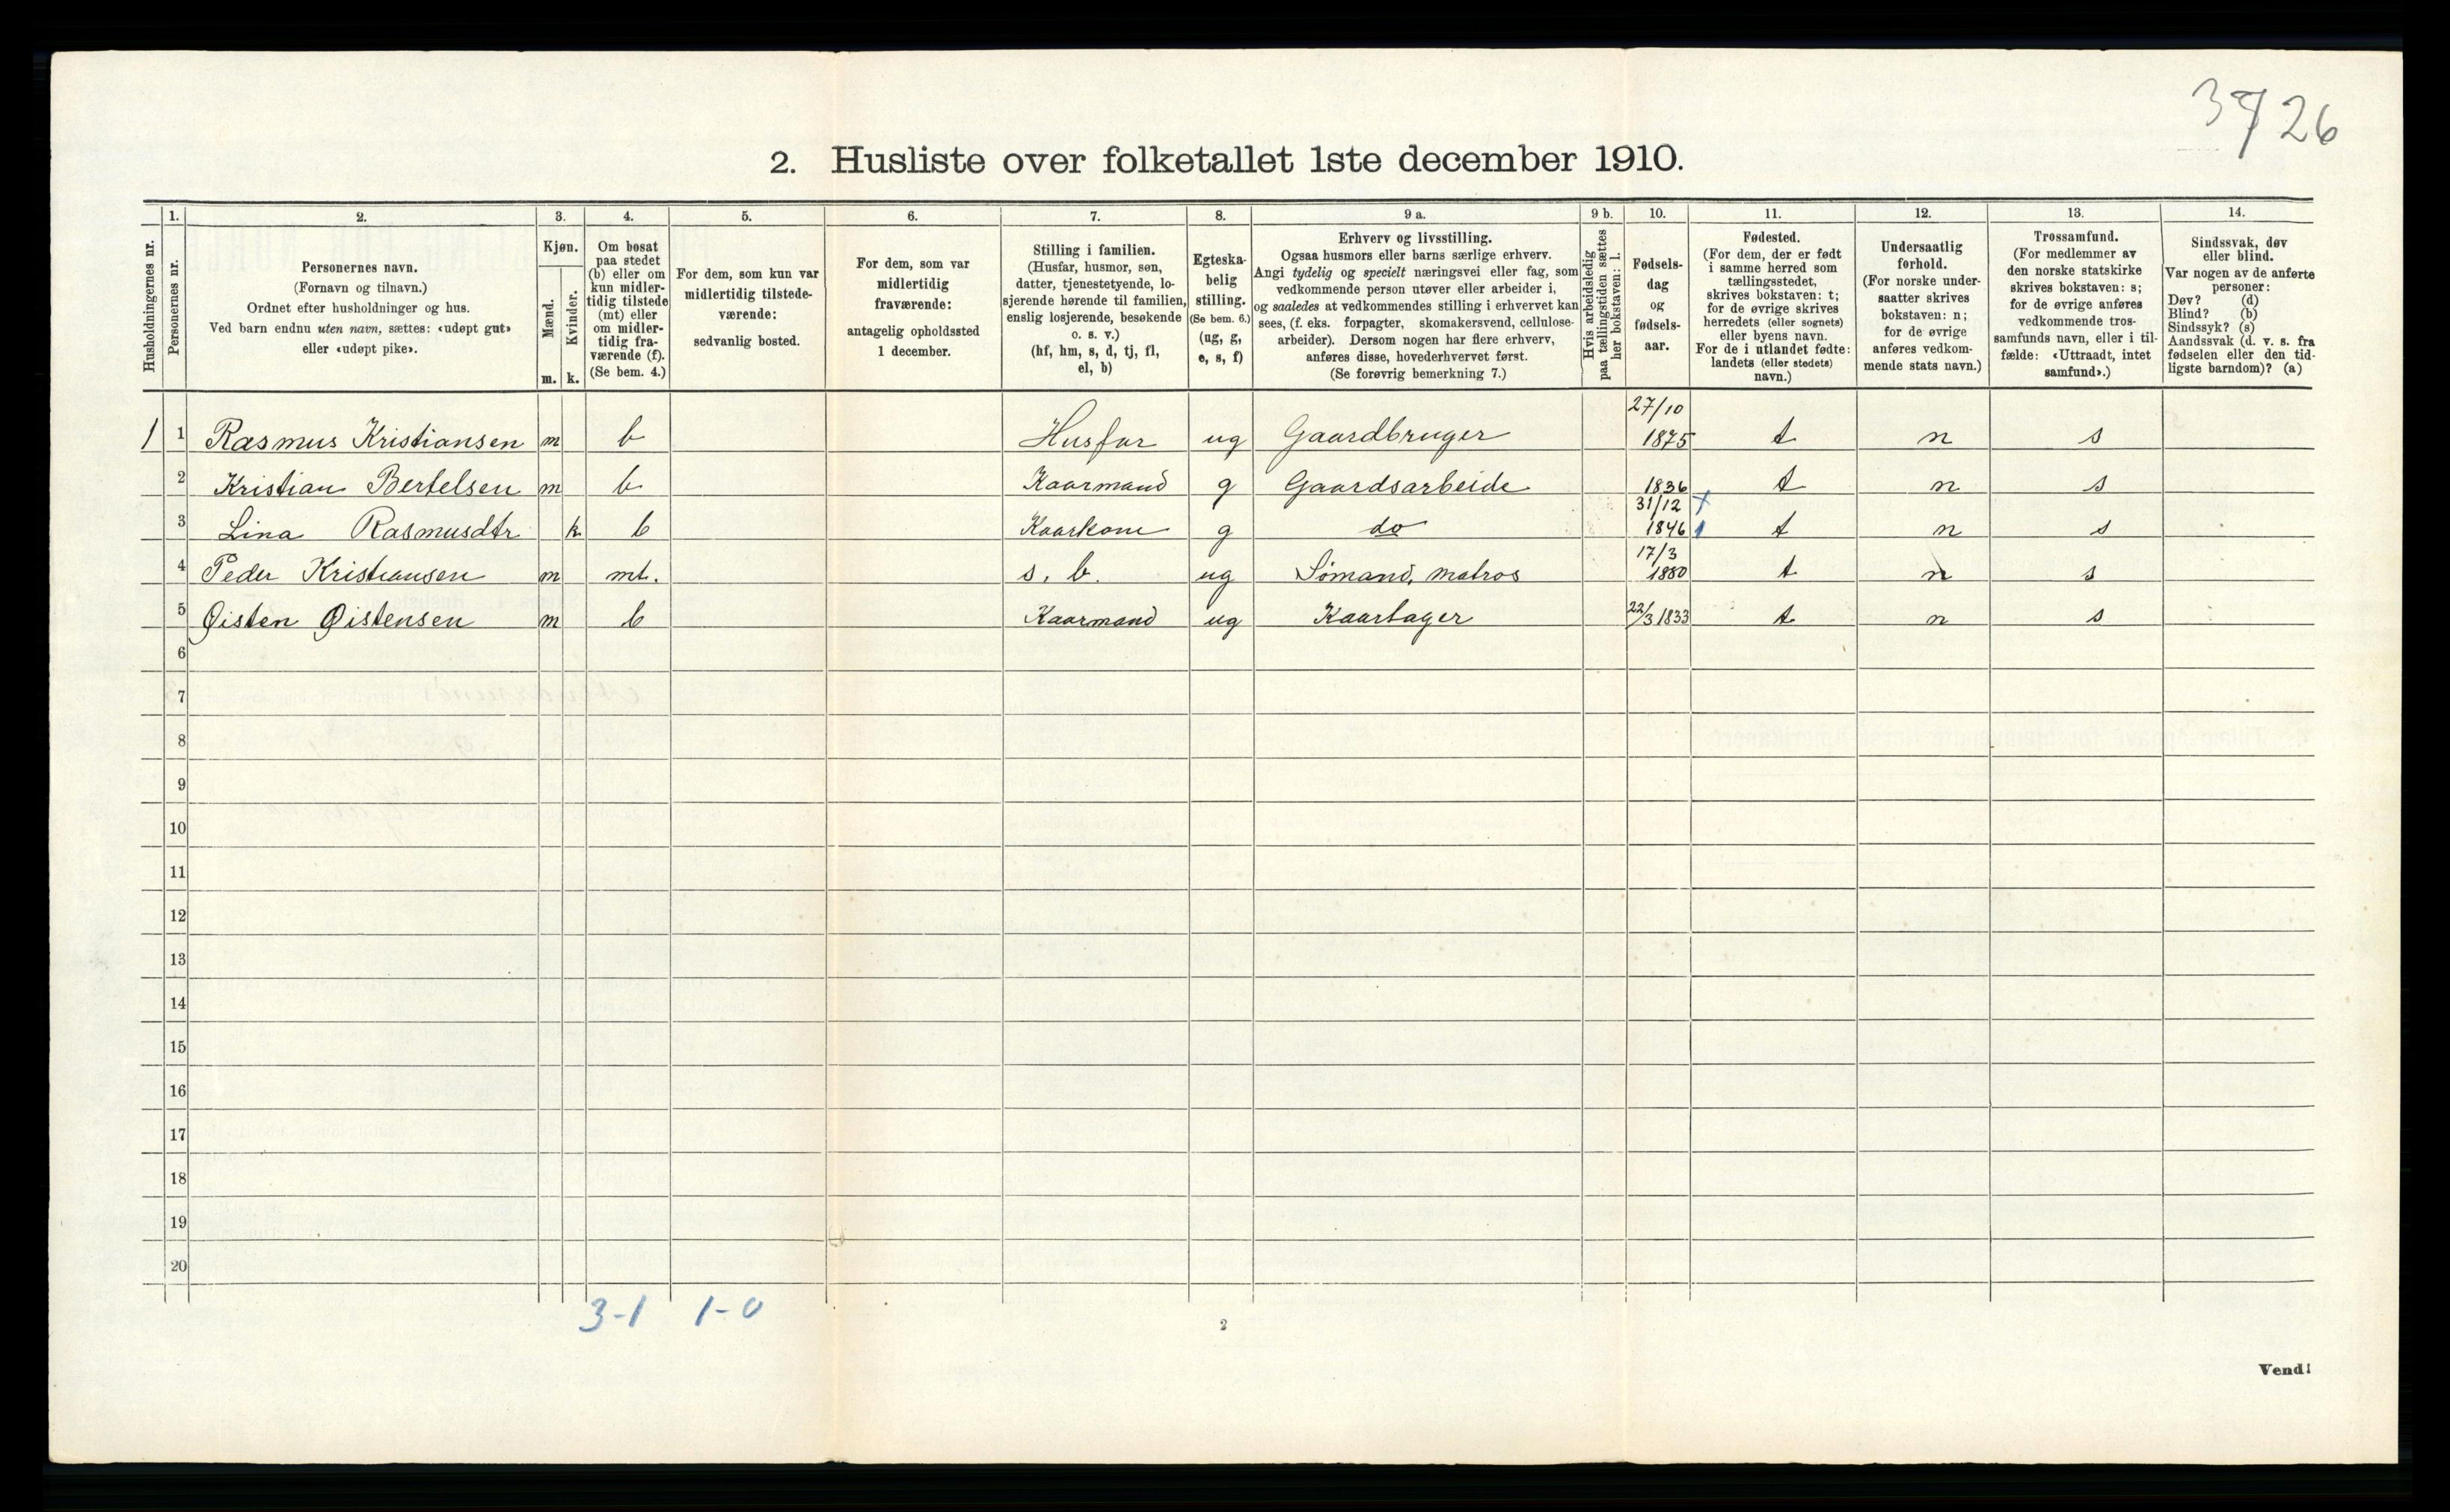 3726
2. Husliste over folketallet 1ste december 1910.
Husholdningernes nr.
1. Personernes nr.
2. Personernes navn.
(Fornavn og tilnavn.)
Ordnet efter husholdninger og hus.
Ved barn endnu uten navn, sættes: «udøpt gut»
eller «udøpt pike».
3. Kjøn.
Mænd. m.
Kvinder. k.
4. Om bosat
paa stedet
(b) eller om
kun midler-
tidig tilstede
(mt) eller
om midler-
tidig fra-
værende (f).
(Se bem. 4.)
5. For dem, som kun var
midlertidig tilstede-
værende:
sedvanlig bosted.
6. For dem, som var
midlertidig
fraværende:
antagelig opholdssted
1 december.
7. Stilling i familien.
(Husfar, husmor, søn,
datter, tjenestetyende, lo-
sjerende hørende til familien,
enslig losjerende, besøkende
o. s. v.)
(hf, hm, s, d, tj, fl,
el, b)
8. Egteska-
belig
stilling.
(Se bem. 6.)
(ug, g,
e, s, f)
9 a. Erhverv og livsstilling.
Ogsaa husmors eller barns særlige erhverv.
Angi tydelig og specielt næringsvei eller fag, som
vedkommende person utøver eller arbeider i,
og saaledes at vedkommendes stilling i erhvervet kan
sees, (f. eks. forpagter, skomakersvend, cellulose-
arbeider). Dersom nogen har flere erhverv,
anføres disse, hovederhvervet først.
(Se forøvrig bemerkning 7.)
9 b. Hvis arbeidsledig
paa tællingstiden sættes
her bokstaven: l.
10. Fødsels-
dag
og
fødsels-
aar.
11. Fødested.
(For dem, der er født
i samme herred som
tællingsstedet,
skrives bokstaven: t;
for de øvrige skrives
herredets (eller sognets)
eller byens navn.
For de i utlandet fødte:
landets (eller stedets)
navn.)
12. Undersaatlig
forhold.
(For norske under-
saatter skrives
bokstaven: n;
for de øvrige
anføres vedkom-
mende stats navn.)
13. Trossamfund.
(For medlemmer av
den norske statskirke
skrives bokstaven: s;
for de øvrige anføres
vedkommende tros-
samfunds navn, eller i til-
fælde: «Uttraadt, intet
samfund».)
14. Sindssvak, døv
eller blind.
Var nogen av de anførte
personer:
Døv? (d)
Blind? (b)
Sindssyk? (s)
Aandssvak (d. v. s. fra
fødselen eller den tid-
ligste barndom)? (a)
1 1 Rasmus Kristiansen m b Husfar ug Gaardbruger 27/10 1875 t n s
2 Kristian Bertelsen m b Kaarmand g Gaardsarbeide 1836 t n s
3 Lina Rasmusdtr k b Kaarkone g do 31/12 1846 t n s
4 Peder Kristiansen m mt. s. b. ug Sømand, matros 17/3 1880 t n s
5 Øisten Øistensen m b Kaarmand ug Kaartager 22/3 1833 t n s
6
7
8
9
10
11
12
13
14
15
16
17
18
19
20
3-1 1-0
2
Vend!